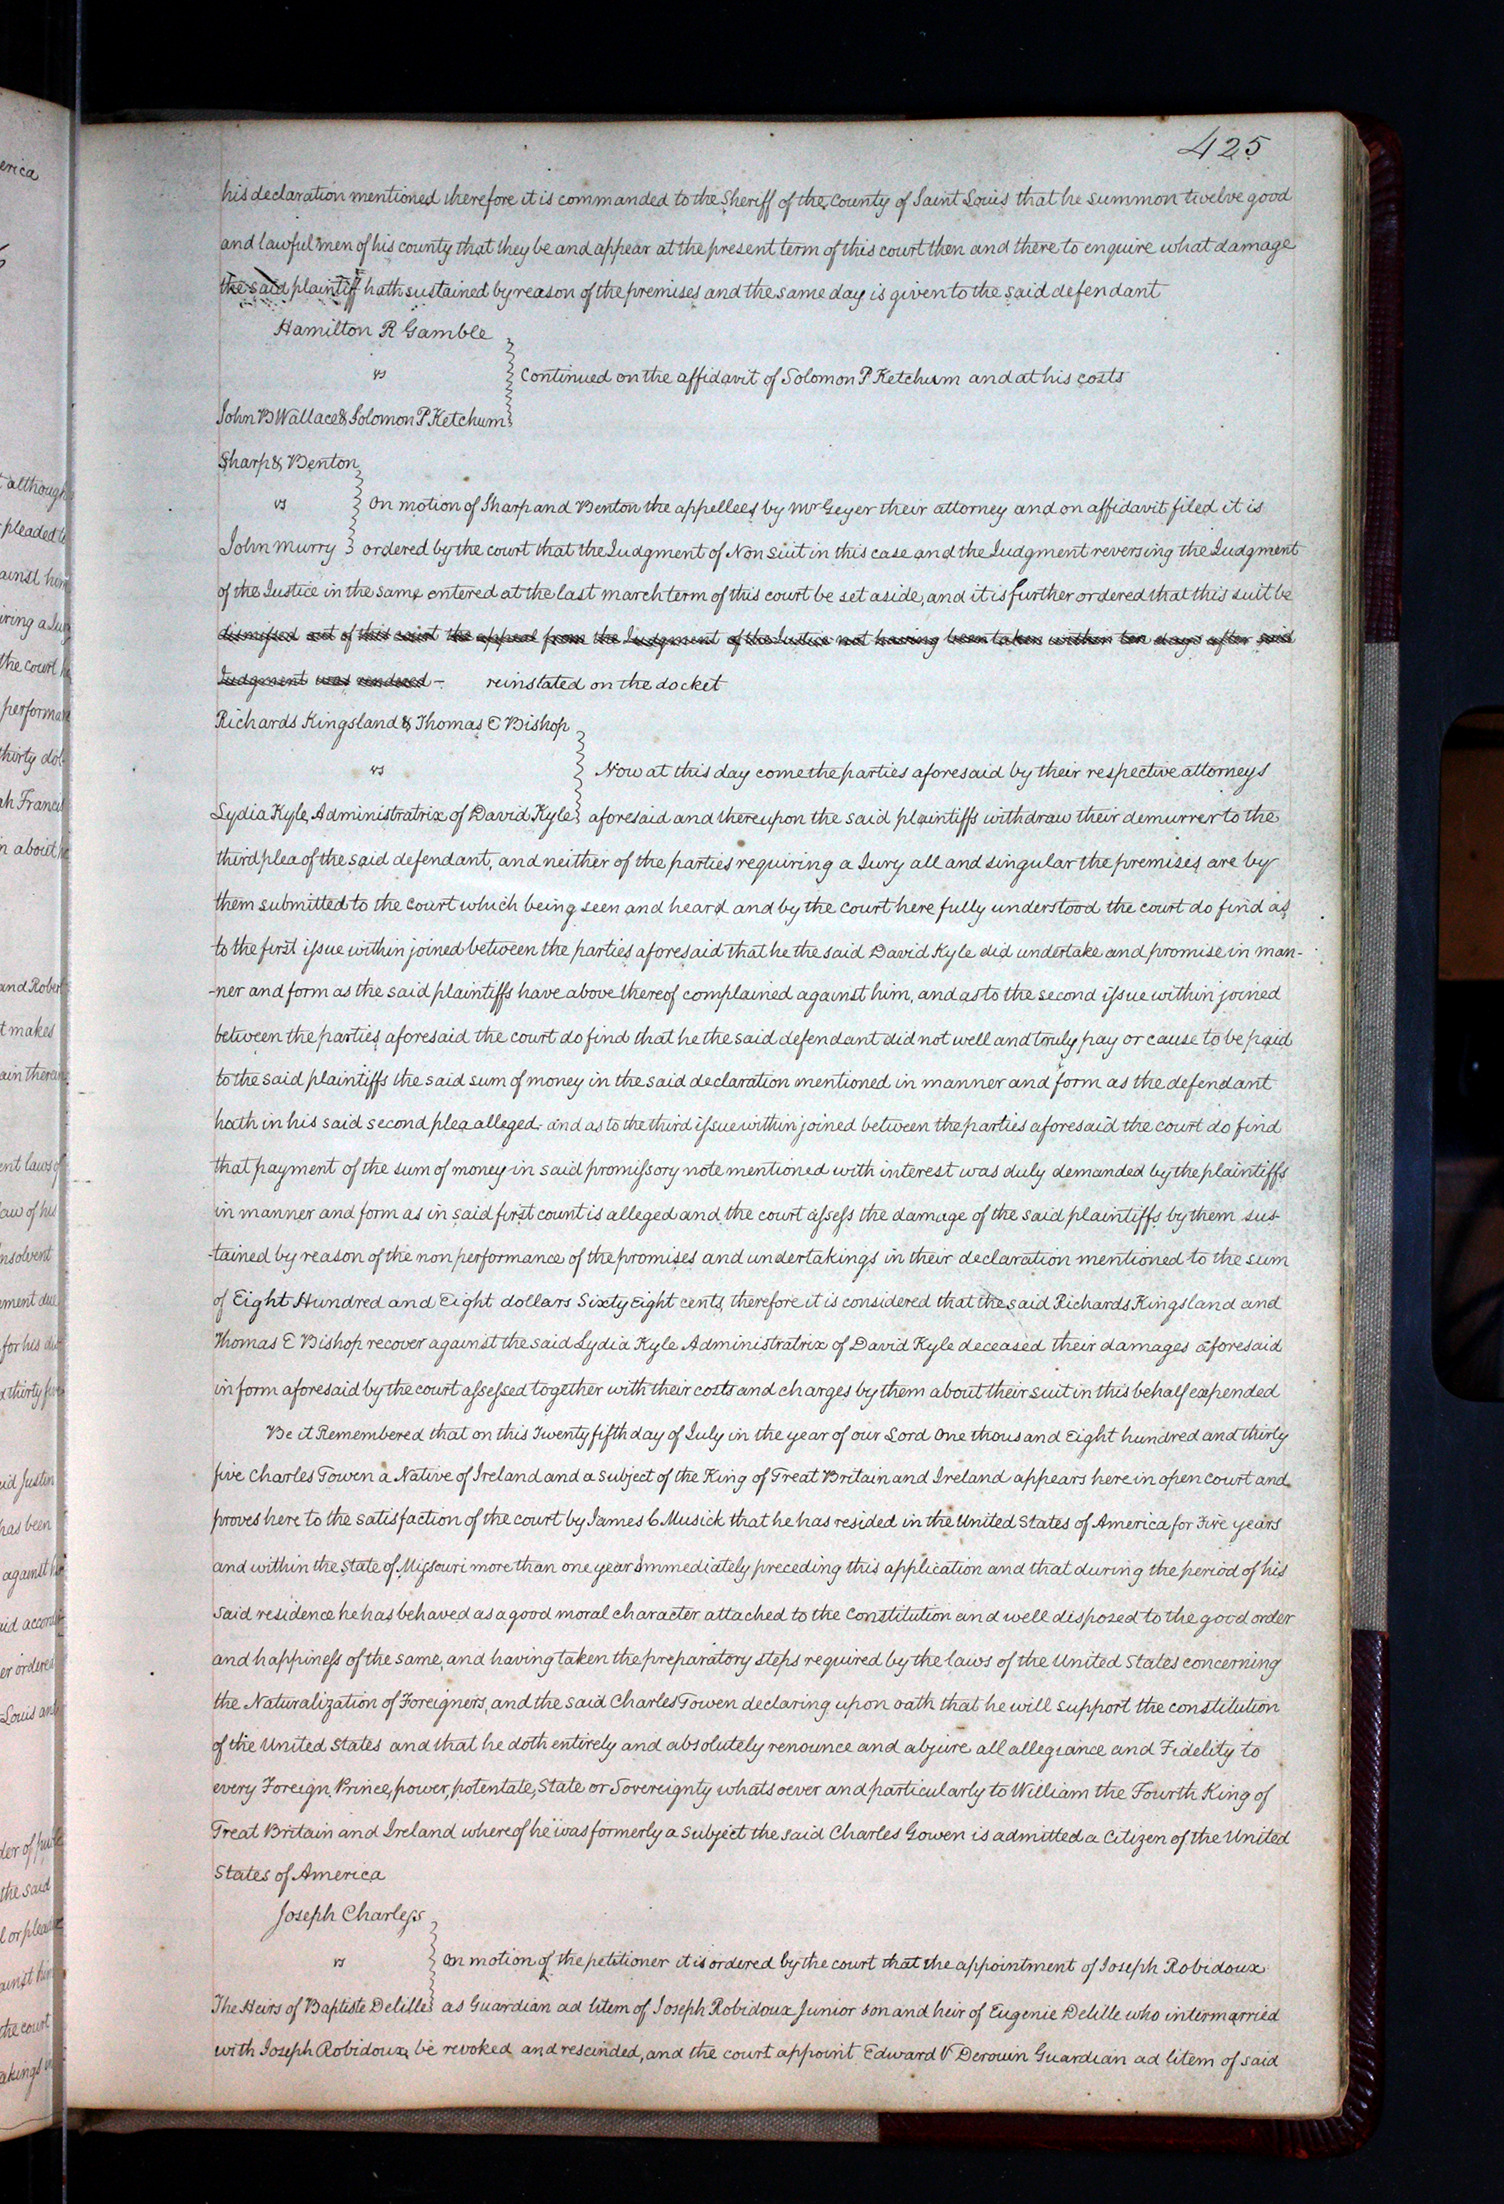 425
his declaration mentioned therefore it is commanded to the Sheriff of the County of Saint Louis that he summon twelve good
and lawful men of his county that they be and appear at the present term of this court then and there to enquire what damage
the said plaintiff hath sustained by reason of the premises and the same day is given to the said defendant
Hamilton R Gamble
vs
Continued on the affidavit of Solomon P Ketchum and at his costs
John B Wallace & Solomon P Ketchum
Sharp & Benton
vs On motion of Sharp and Benton the appellees by Mr Geyer their attorney and on affidavit filed it is
John Murry ordered by the court that the Judgment of Non suit in this case and the Judgment reversing the Judgment
of the Justice in the same entered at the last march term of this court be set aside, and it is further ordered that this suit be
dismissed out of this court the appeal from the Judgment of the Justice not having been taken within ten days after said
Judgment was rendered - reinstated on the docket
Richards Kingsland & Thomas E Bishop
vs Now at this day come the parties aforesaid by their respective attorneys
Lydia Kyle, Administratrix of David Kyle aforesaid and thereupon the said plaintiffs withdraw their demurrer to the
third plea of the said defendant, and neither of the parties requiring a Jury all and singular the premises are by
them submitted to the court which being seen and heard and by the court here fully understood the court do find as
to the first issue within joined between the parties aforesaid that he the said David Kyle did undertake and promise in man-
-ner and form as the said plaintiffs have above thereof complained against him, and as to the second issue within joined
between the parties aforesaid the court do find that he the said defendant did not well and truly pay or cause to be paid
to the said plaintiffs the said sum of money in the said declaration mentioned in manner and form as the defendant
hath in his said second plea alleged. and as to the third issue within joined between the parties aforesaid the court do find
that payment of the sum of money in said promissory note mentioned with interest was duly demanded by the plaintiffs
in manner and form as in said first count is alleged and the court assess the damage of the said plaintiffs by them sus-
-tained by reason of the non performance of the promises and undertakings in their declaration mentioned to the sum
of Eight Hundred and Eight dollars Sixty Eight cents, therefore it is considered that the said Richards Kingsland and
Thomas E Bishop recover against the said Lydia Kyle Administratrix of David Kyle deceased their damages aforesaid
in form aforesaid by the court assessed together with their costs and charges by them about their suit in this behalf expended
Be it Remembered that on this Twenty fifth day of July in the year of our Lord One thousand Eight hundred and thirty
five Charles Towen a Native of Ireland and a subject of the King of Treat Britain and Ireland appears here in open court and
proves here to the satisfaction of the court by James C Musick that he has resided in the United States of America for Five years
and within the State of Missouri more than one year immediately preceding this application and that during the period of his
said residence he has behaved as a good moral character attached to the Constitution and well disposed to the good order
and happiness of the same, and having taken the preparatory steps required by the laws of the United States concerning
the Naturalization of Foreigners, and the said Charles Towen declaring upon oath that he will support the constitution
of the United States and that he doth entirely and absolutely renounce and abjure all allegiance and Fidelity to
every Foreign Prince, power, potentate, State or Sovereignty whatsoever and particularly to William the Fourth King of
Treat Britain and Ireland whereof he was formerly a subject the said Charles Gowen is admitted a Citizen of the United
States of America
Joseph Charless
vs On motion of the petitioner it is ordered by the court that the appointment of Joseph Robidoux
The Heirs of Baptiste Delille as Guardian ad litem of Joseph Robidoux Junior son and heir of Eugenie Delille who intermarried
with Joseph Robidoux, be revoked and rescinded, and the court appoint Edward V Derouin Guardian ad litem of said